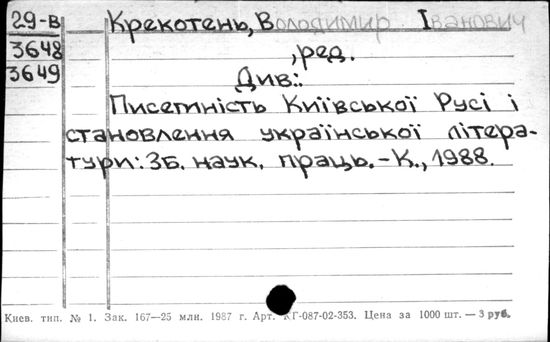 29-В
3648
3649
Крекотень, Володимир Іванович
, ред.
Див.:
Писемність Київської Русі і
становлення української літера-
тури: Зб. наук. праць. - К., 1988.
Киев. тип. № 1. Зак. 167—25 млн. 1987 г. Арт. КГ-087-02-353. Цена за 1000 шт. — 3 руб.